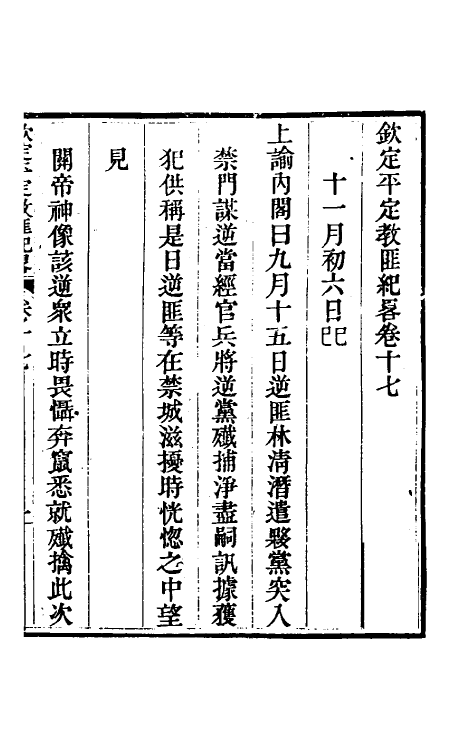 欽定平定教匪紀畧卷十七
十一月初六日己巳
上諭內閣曰九月十五日逆匪林清潛遣夥黨突入
禁門謀逆當經官兵將逆黨殲捕淨盡嗣訊據獲
犯供稱是日逆匪等在禁城滋擾時恍惚之中望
見
關帝神像該逆衆立時畏懾奔竄悉就殲擒此次